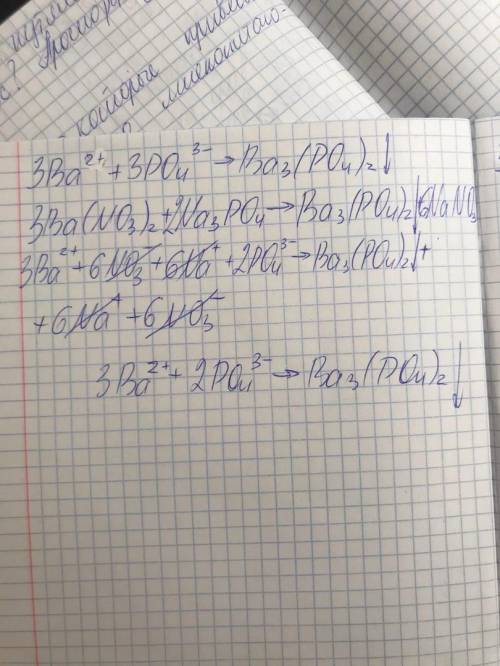 с? Простор
которые привели
3Ba²⁺ + 3PO₄³⁻ → Ba₃(PO₄)₂↓
3Ba(NO₃)₂ + 2Na₃PO₄ → Ba₃(PO₄)₂↓ + 6NaNO₃
3Ba²⁺ + 6NO₃⁻ + 6Na⁺ + 2PO₄³⁻ → Ba₃(PO₄)₂↓ +
+ 6Na⁺ + 6NO₃⁻
3Ba²⁺ + 2PO₄³⁻ → Ba₃(PO₄)₂↓